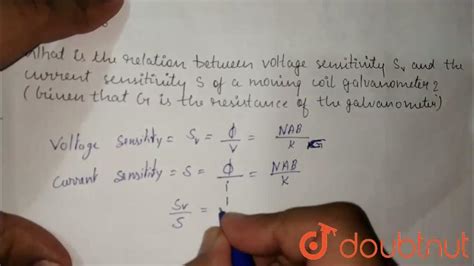 What is the relation between voltage sensitivity Sv and the
current sensitivity S of a moving coil galvanometer?
(Given that G is the resistance of the galvanometer)
Voltage Sensitility = Sv = ϕ/V = NAB/K G
Current Sensitility = S = ϕ/i = NAB/K
Sv/S =
doubtnut